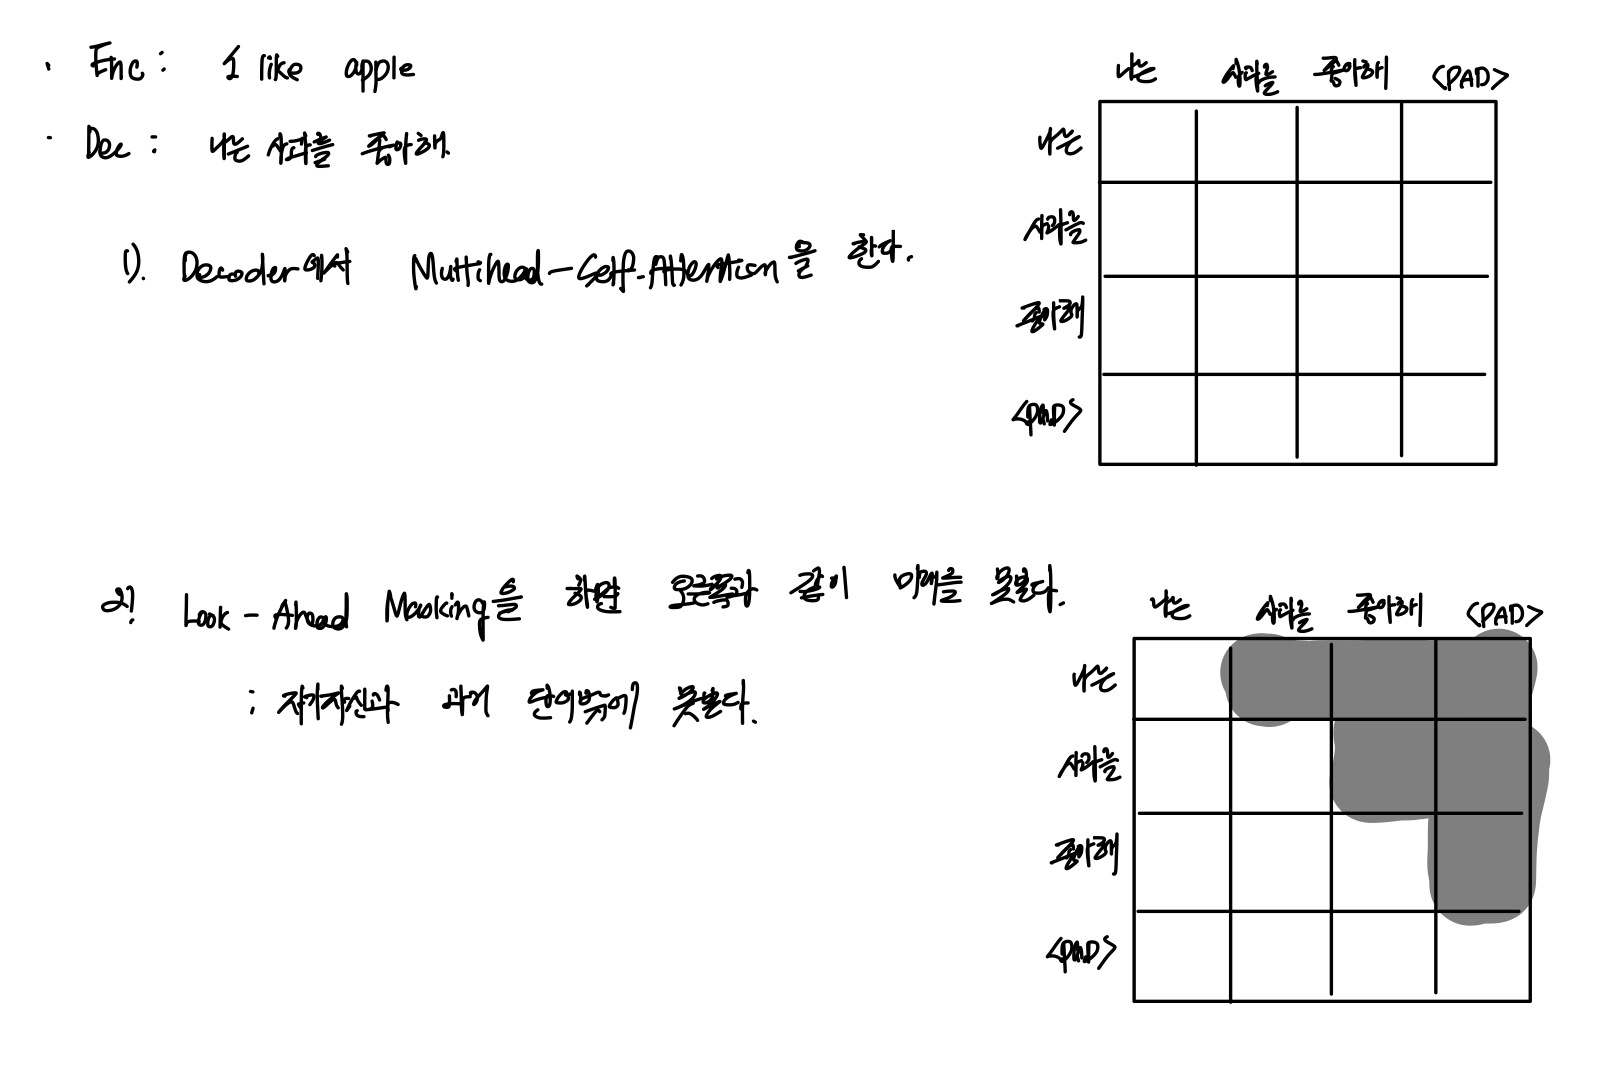 · Enc : I like apple
· Dec : 나는 사과를 좋아해.
1). Decoder에서 Multihead-Self-Attention을 한다.
나는 사과를 좋아해 <PAD>
나는
사과를
좋아해
<PAD>
2). Look-Ahead Masking을 하면 오른쪽과 같이 미래를 못본다.
: 자기자신과 과거 단어밖에 못본다.
나는 사과를 좋아해 <PAD>
나는
사과를
좋아해
<PAD>